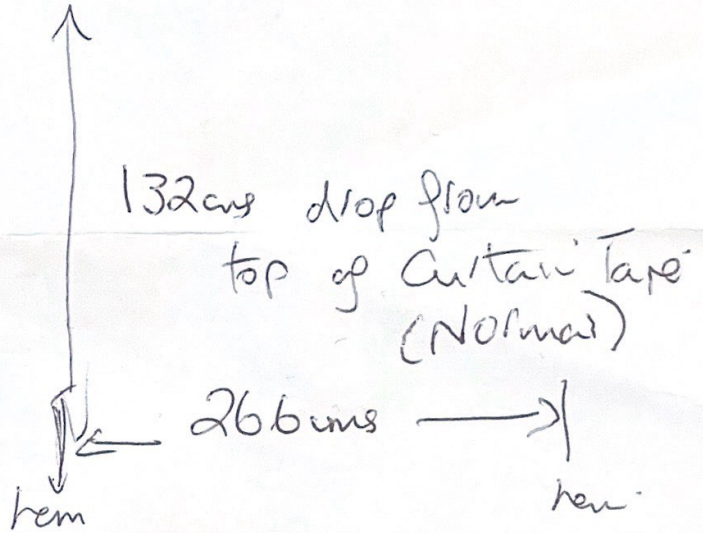 132cms drop from
top of Curtain Tape
(Normal)
266cms
hem
hem